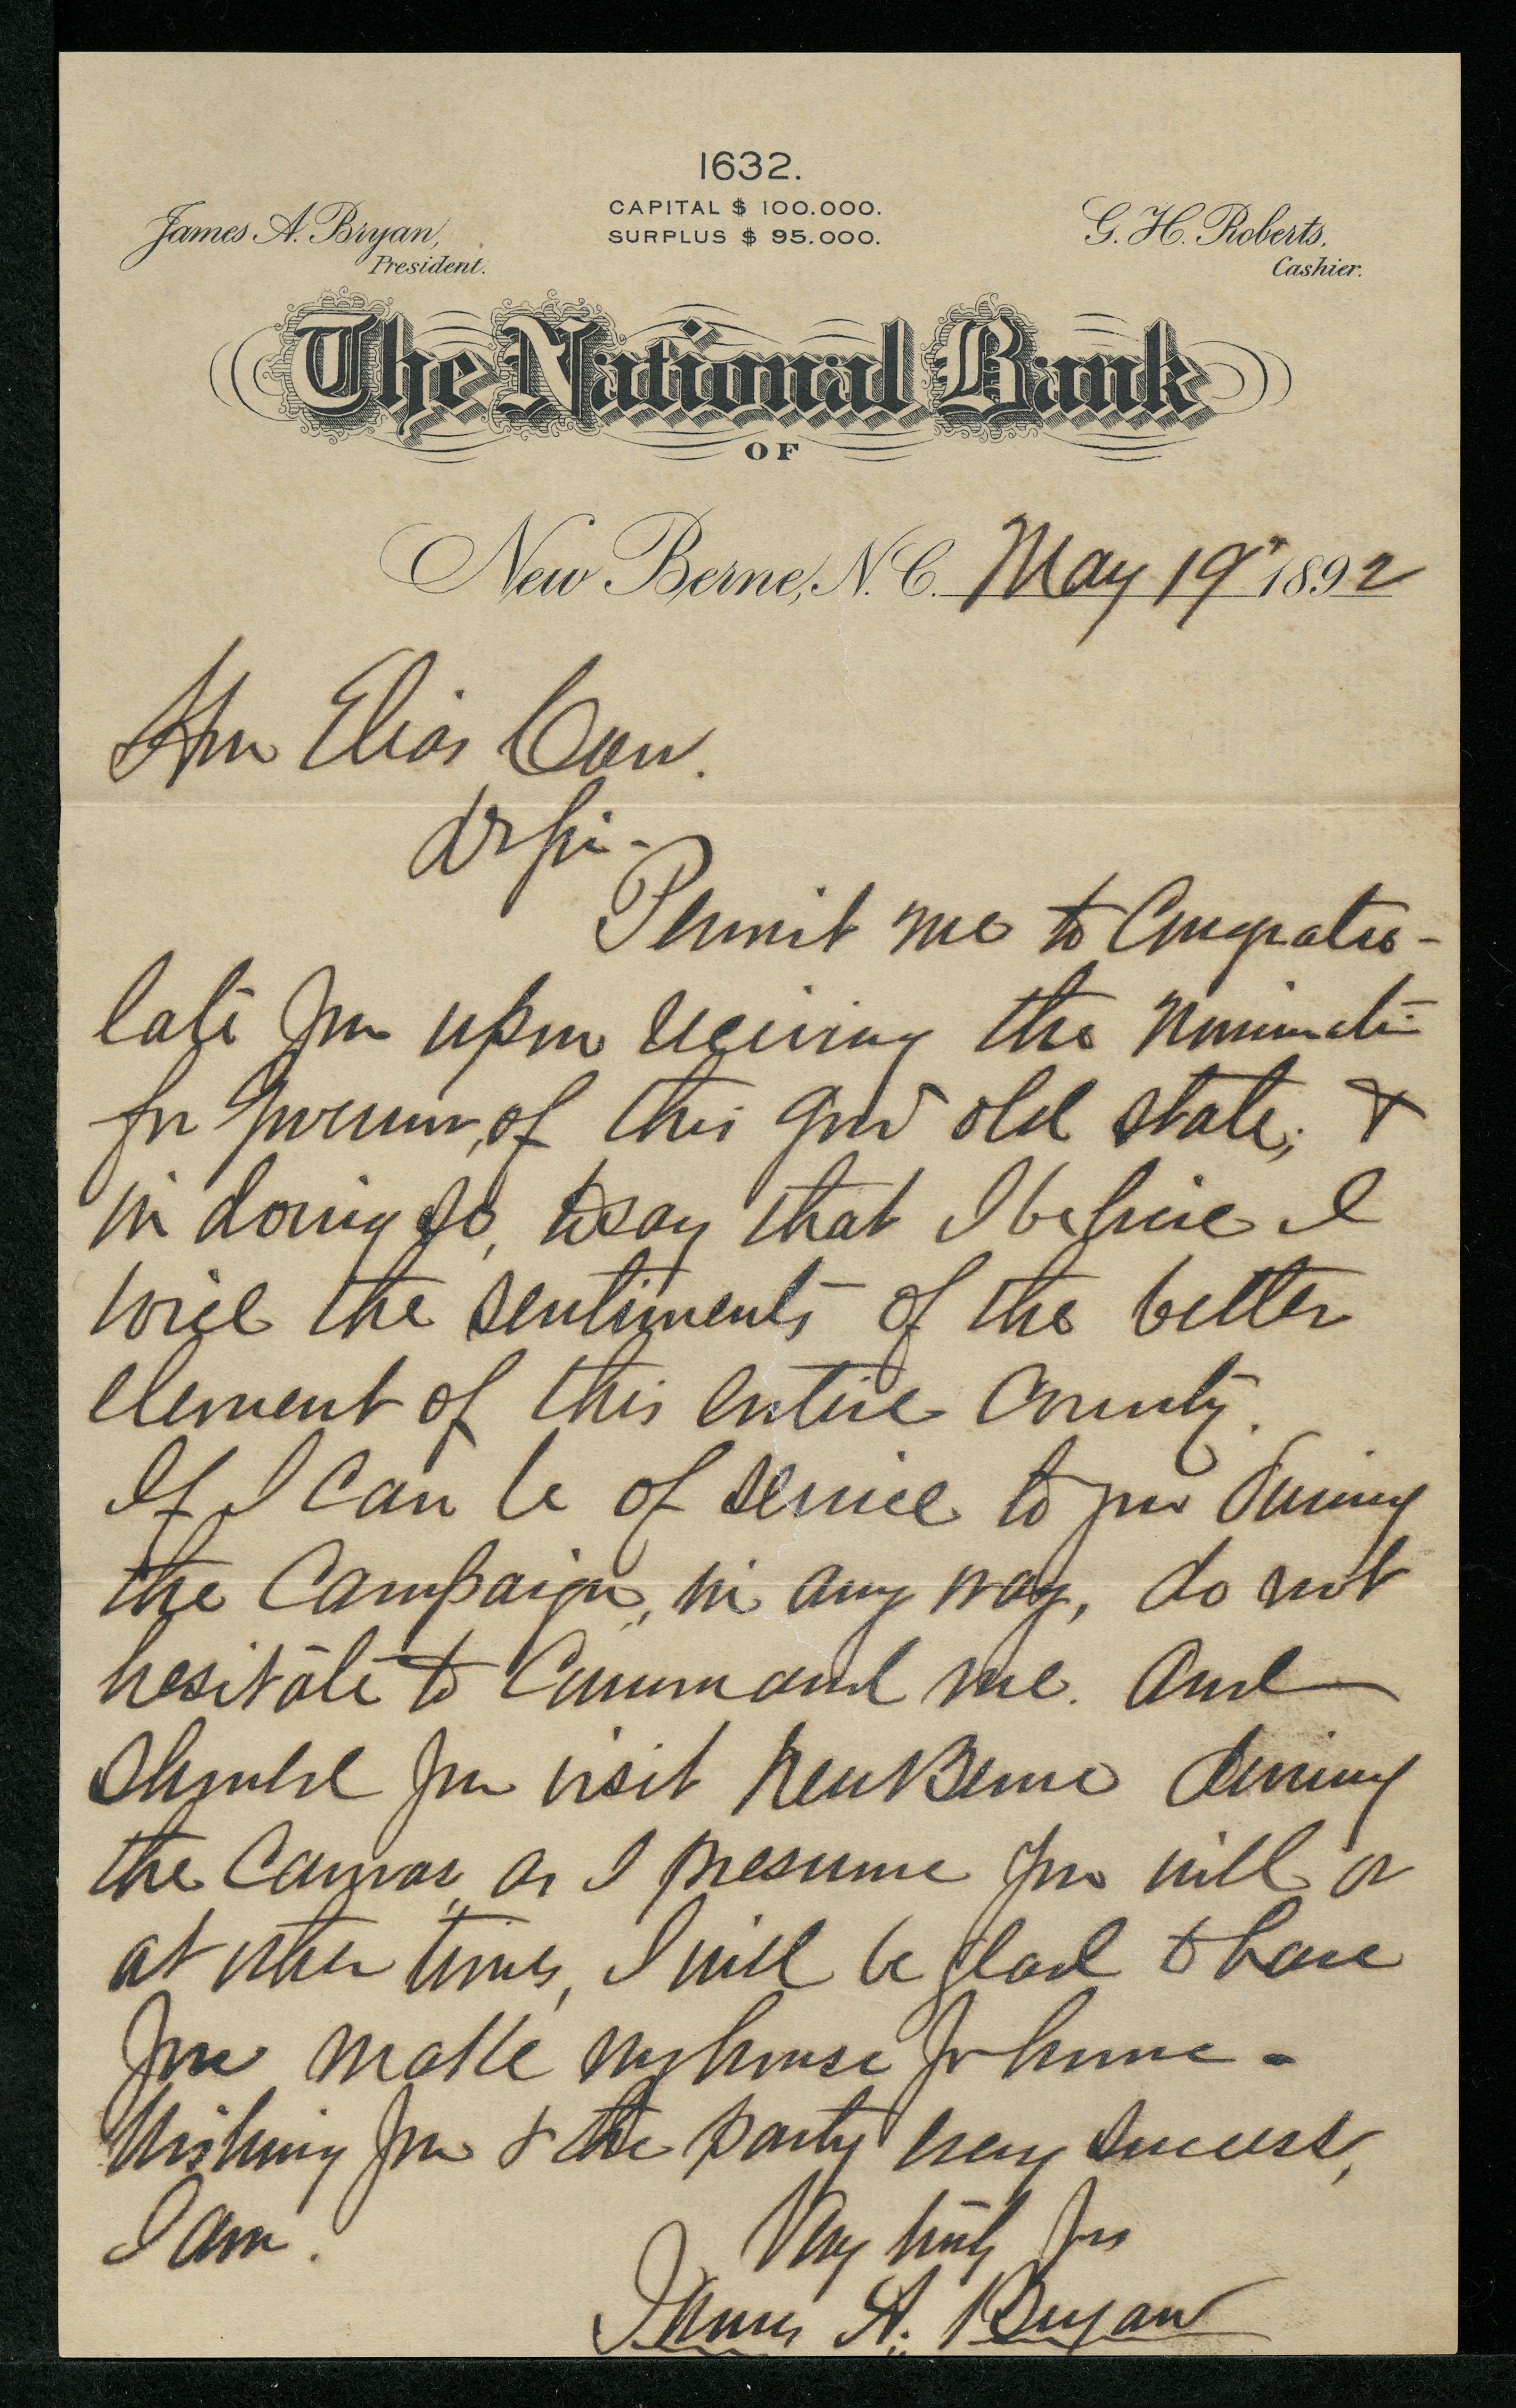 1632.
CAPITAL $ 100.000.
SURPLUS $ 95.000.
James A. Bryan,
President.
G. H. Roberts,
Cashier.
The National Bank
OF
New Berne, N.C. May 19" 1892
Hon Elias Carr.
Dr Sir -
Permit me to Congratu-
late you upon receiving the nomination
for Governor, of this good old state; &
in doing so, to say that I believe I
voice the sentiments of the better
element of this entire County.
If I can be of service to you during
the Campaign, in any way, do not
hesitate to Command me. And
should you visit New Berne during
the Canvas, as I presume you will or
at other times, I will be glad to have
you make my house yr home -
Wishing you & the party every success,
I am.
Very truly yrs
James A. Bryan